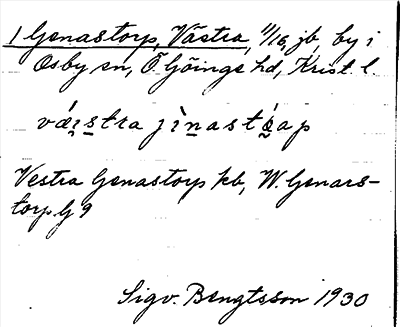 1 Genastorp, Västra, 11/16, jb, by i
Osby sn, Ö Göinge hd, Krist. l.
væ̀i̯stra jìnastǫ́ap
Vestra Genastorp kb, W. Genars-
torp G 9
Sigv. Bengtsson 1930